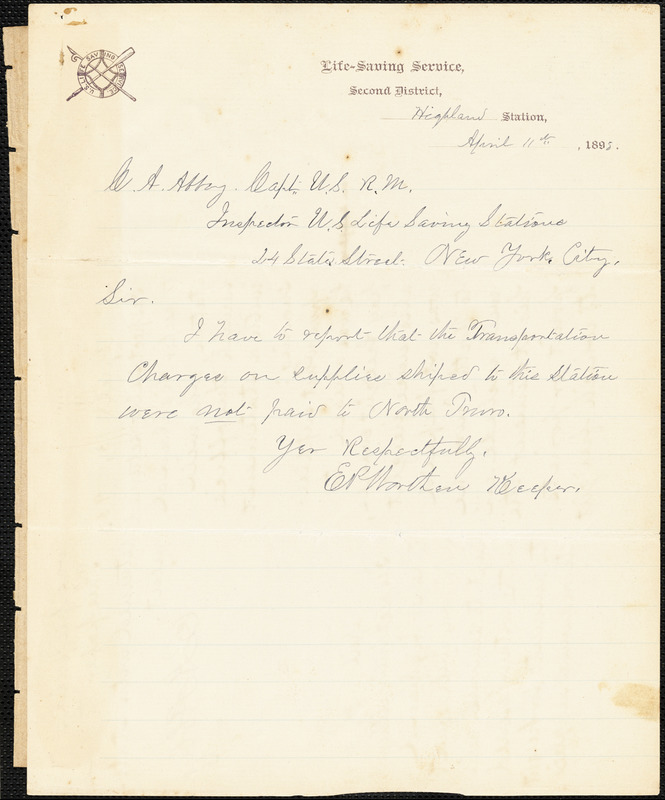 U.S. LIFE SAVING SERVICE
Life-Saving Service,
Second District,
Highland Station,
April 11th, 189
C. A. Abbey. Capt. U.S. R.M.
Inspector U.S. Life Saving Stations
24 State Street. New York City.
Sir.
I have to report that the Transportation
Charges on supplies shiped to this Station
were not paid to North Truro.
Yer Respectfully.
E P Worthen Keeper.